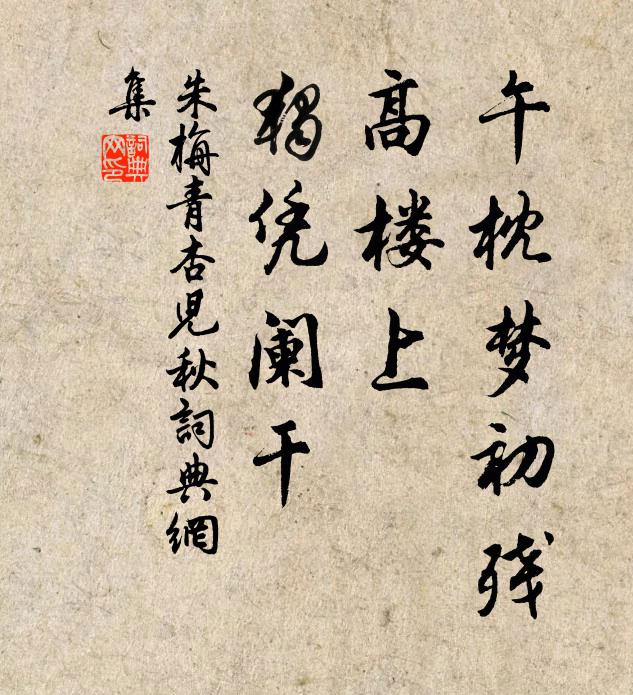 午枕梦初残
高楼上
独凭阑干
朱梅青杏儿秋詞典網
集
詞典網印